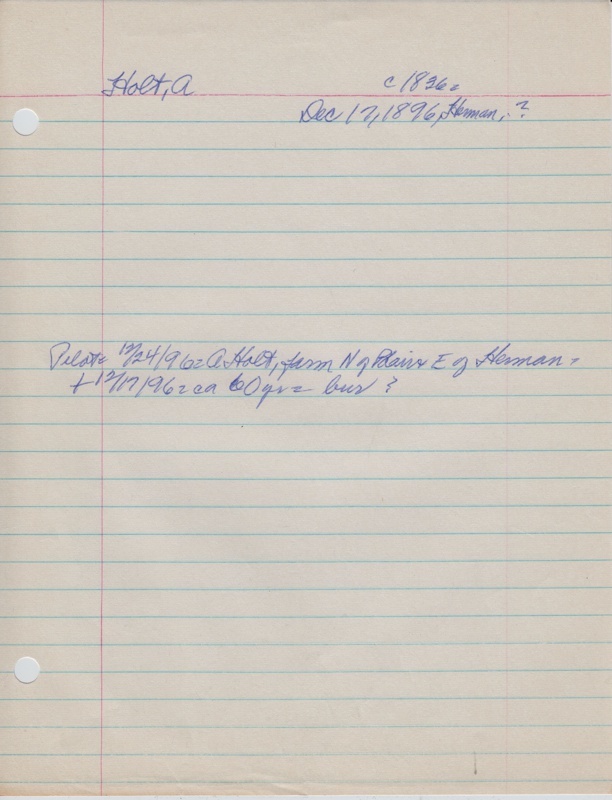 Holt, A c1836=
Dec 17, 1896, Herman, ?
Pilot= 12/24/96= A Holt, farm N of Blair & E of Herman =
+ 12/17/96= ca 60 yr = bur ?